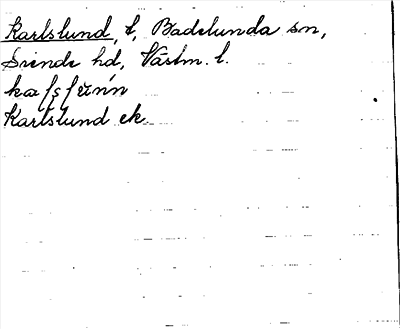 Karlslund, t, Badelunda sn,
Siende hd, Västm. l.
Karlslund ek